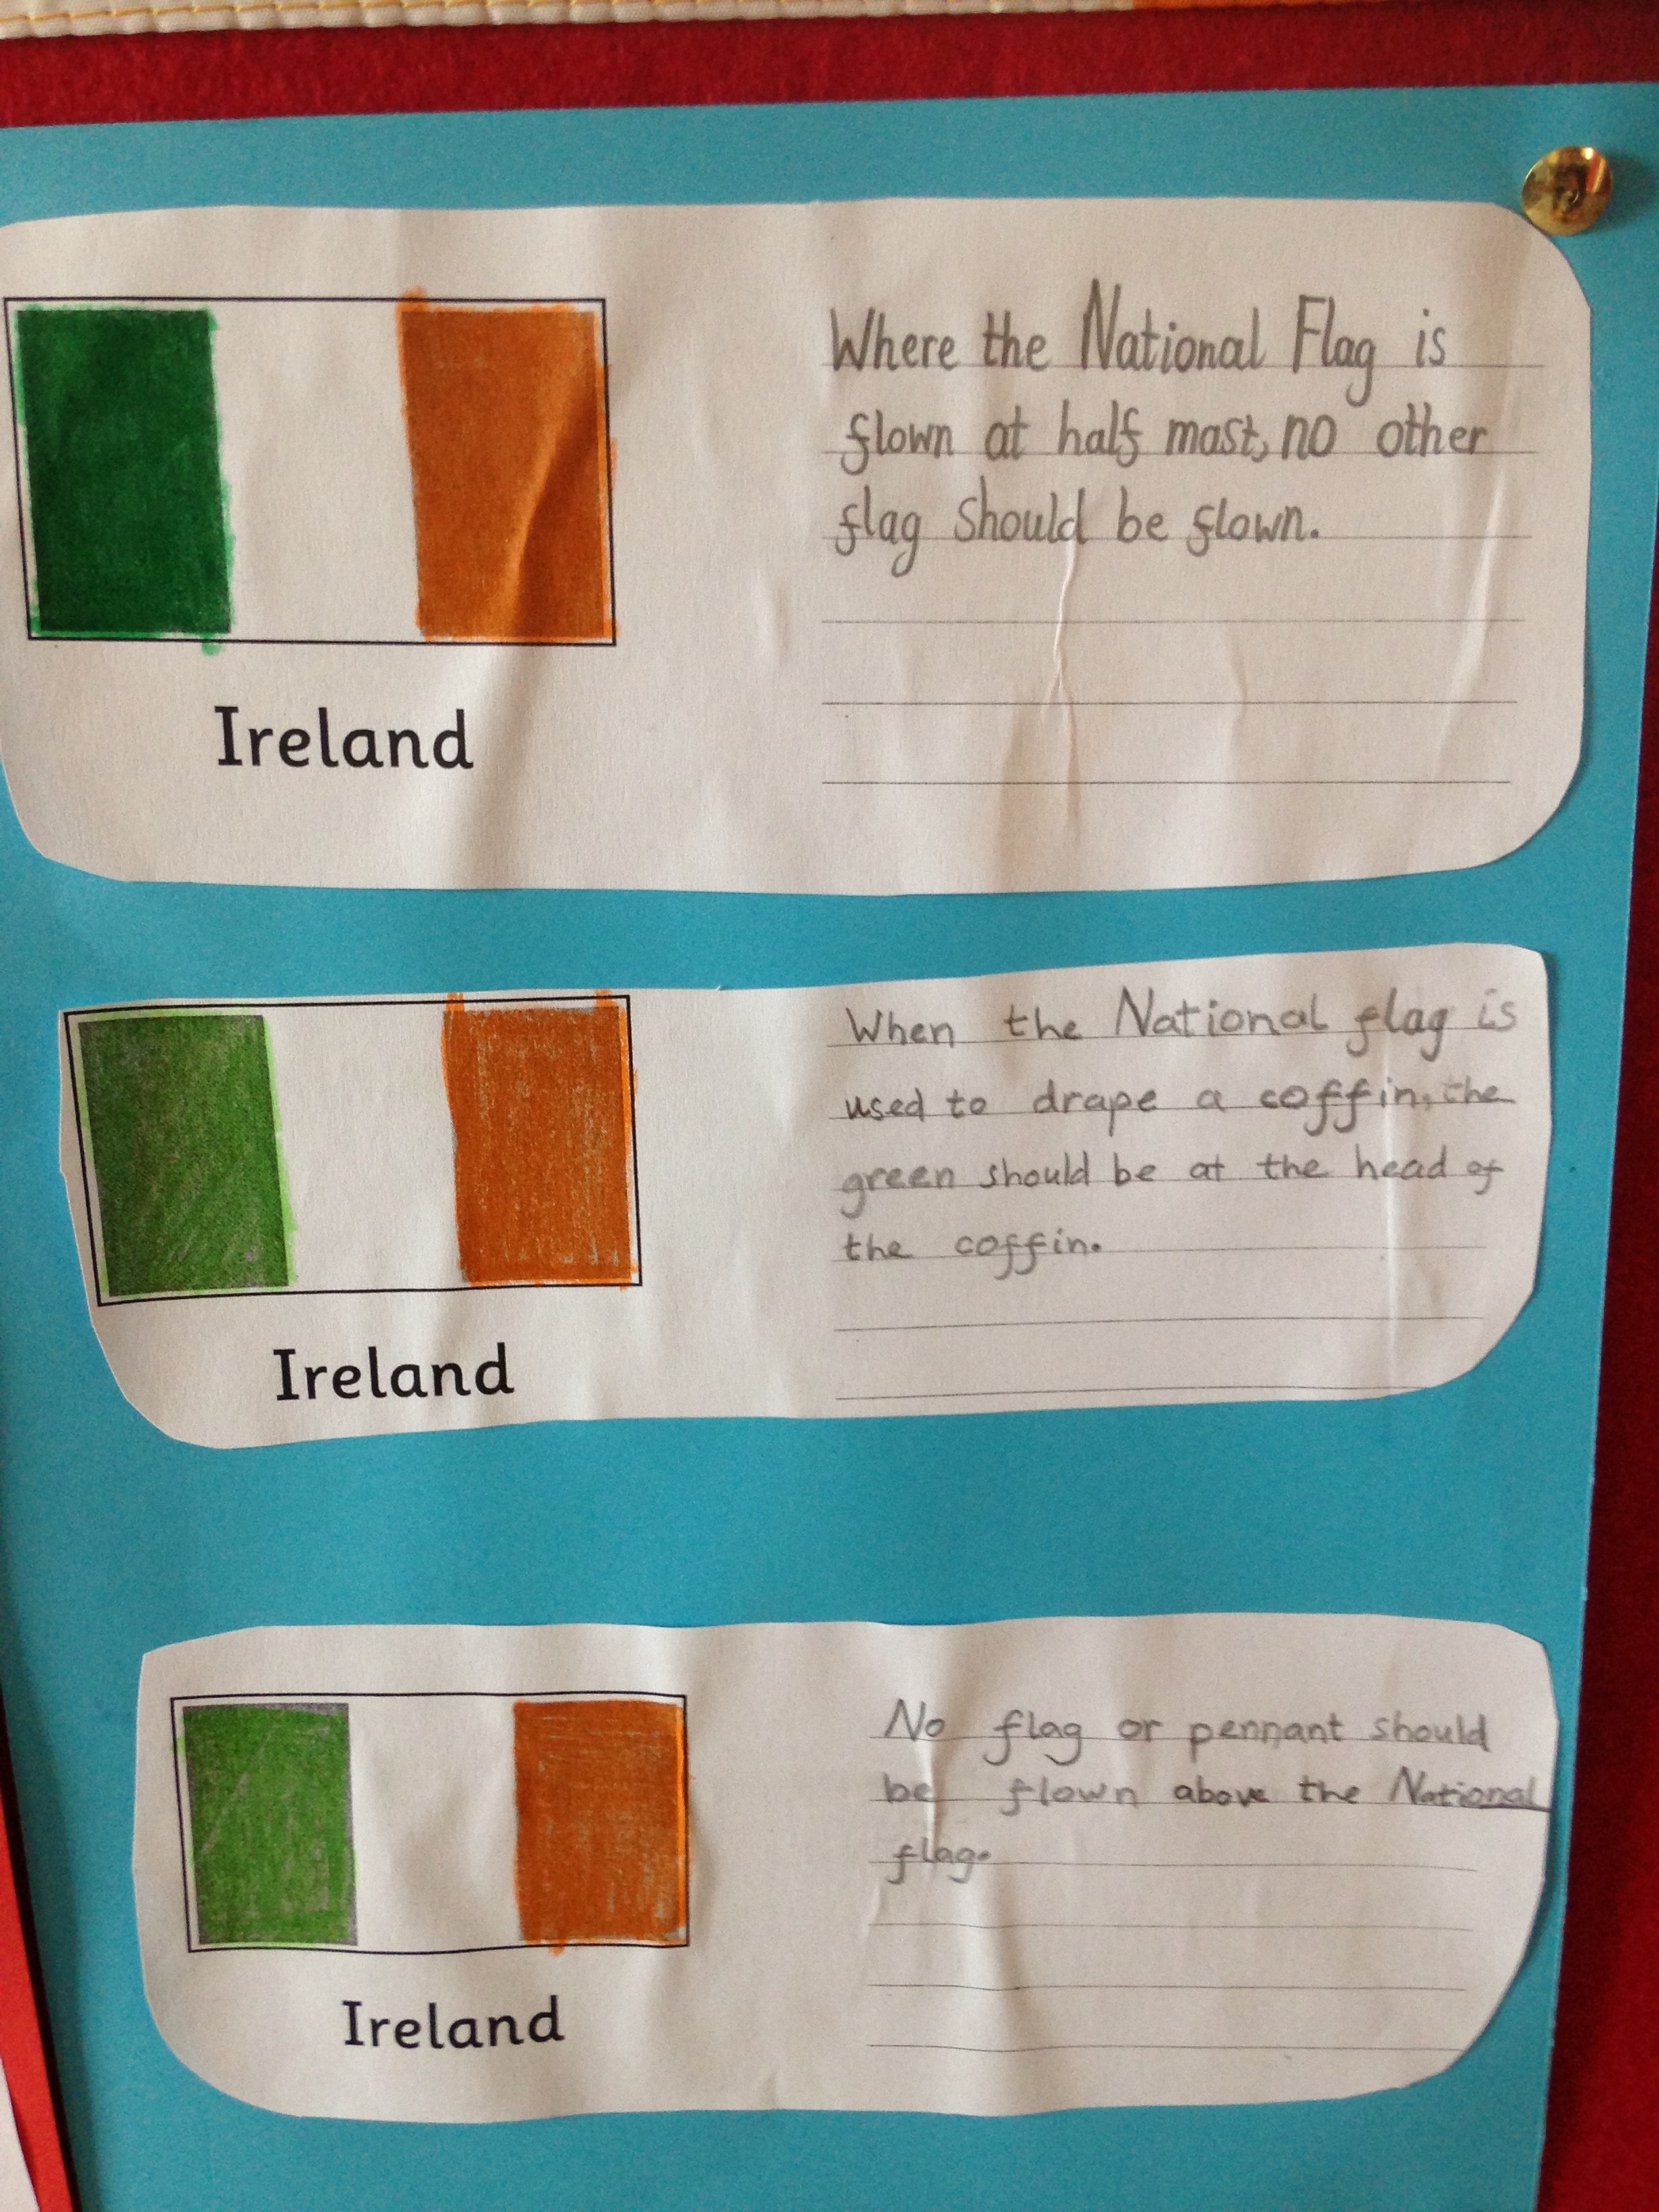 Where the National Flag is
flown at half mast, no other
flag should be flown.
Ireland
When the National flag is
used to drape a coffin, the
green should be at the head of
the coffin.
Ireland
No flag or pennant should
be flown above the National
flag.
Ireland